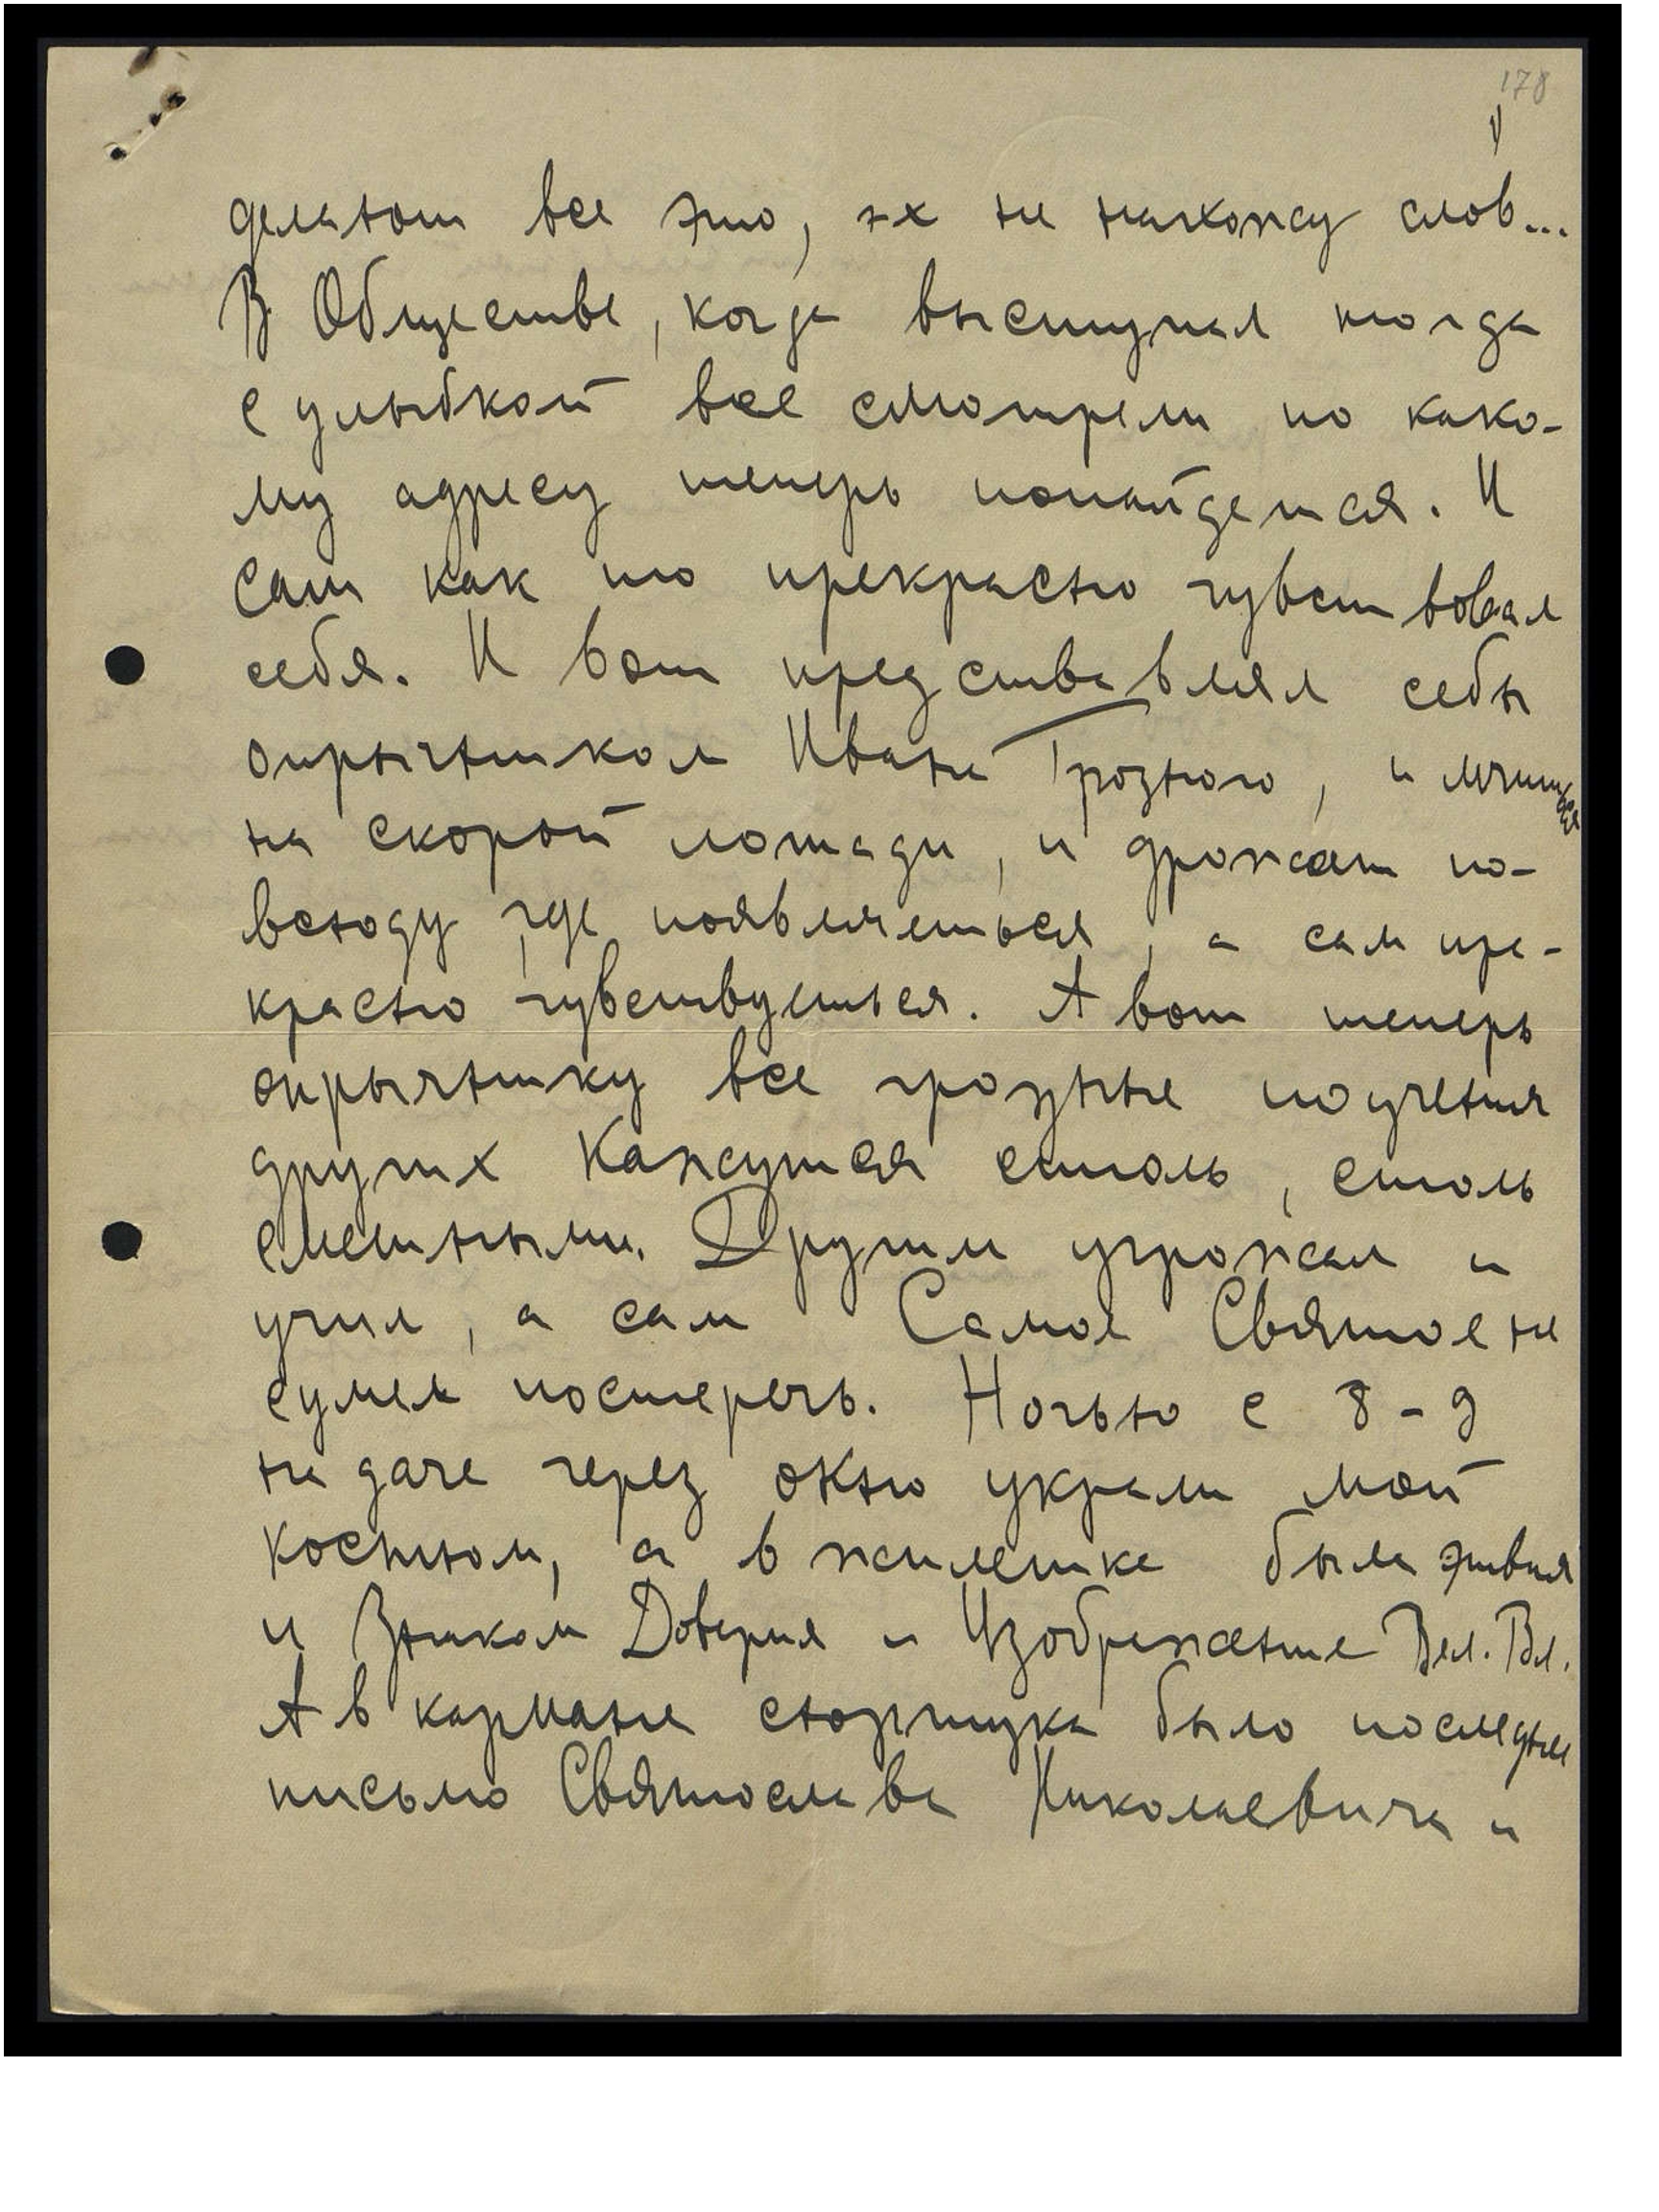 178
делают все это, эх не нахожу слов...
В Обществе, когда выступал тогда
с улыбкой все смотрели по како-
му адресу теперь попайдется. И
сам как то прекрасно чувствовал
себя. И вот представлял себя
опрычником Ивана Грозного, и мчишься
на скорой лошади, и дрожат по-
всюду, где появляешься, а сам пре-
красно чувствуешься. А вот теперь
опрычнику все грозные поучения
других кажутся столь, столь
смешными. Другим угрожал и
учил, а сам Самое Святое не
сумел постеречь. Ночью с 8-9
на даче через окно украли мой
костюм, а в жилетке была
и Знаком Доверия и Изображение Вел. Вл.
А в кармане сюртука было последнее
письмо Святослава Николаевича и